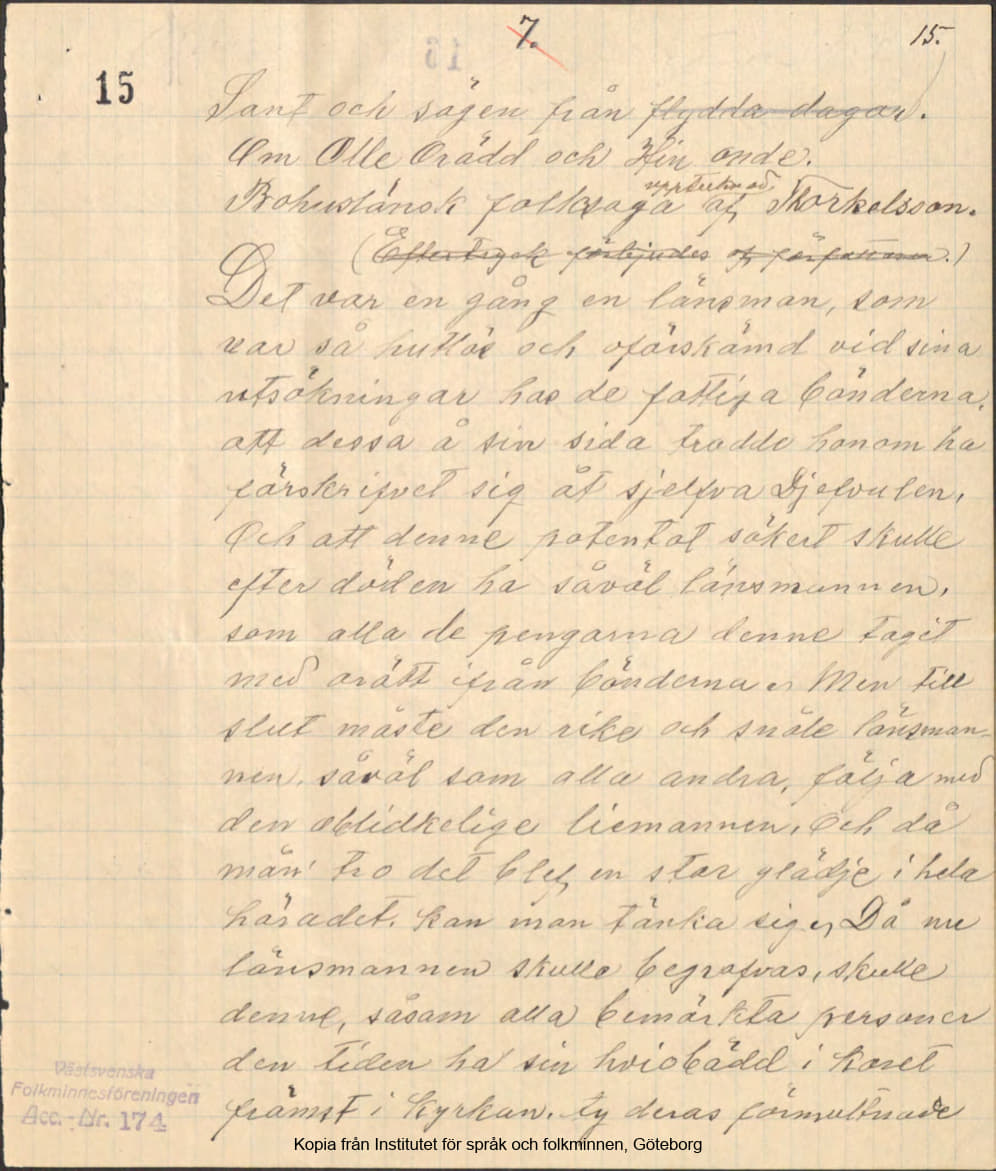 7.
15.
15
Sant och sägen från flydda dagar.
Om Olle Orädd och Hin onde.
upptecknad
Bohuslänsk folksaga af Thorkelsson.
(Eftertryck förbjudes af författaren.)
Det var en gång en länsman, som
var så hutlös och oförskämd vid sina
utsökningar hos de fattiga bönderna,
att dessa å sin sida trodde honom ha
förskrifvet sig åt sjelfva Djefvulen,
Och att denne potentat säkert skulle
efter döden ha såväl länsmannen,
som alla de pengarna denne tagit
med orätt ifrån bönderna. Men till
slut måste den rike och snåle länsman-
nen, såväl som alla andra, följa med
den oblidkelige liemannen, Och då
mån' tro det blef en stor glädje i hela
häradet. kan man tänka sig, Då nu
länsmannen skulle begrafvas, skulle
denne, såsom alla bemärkta personer
den tiden ha sin hvilobädd i koret
främst i kyrkan. ty deras förmultnade
Västsvenska
Folkminnesföreningen
Acc.-Nr. 174
Kopia från Institutet för språk och folkminnen, Göteborg